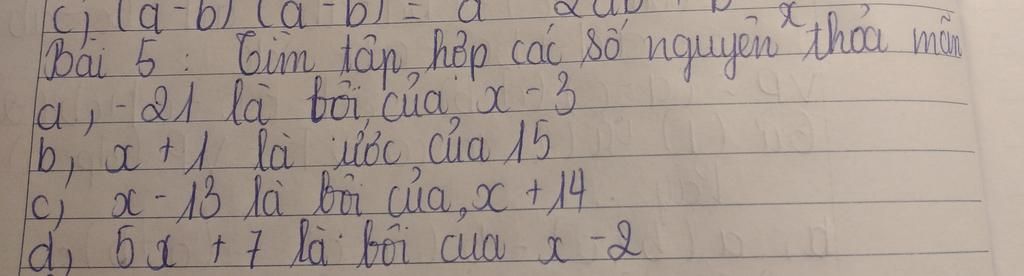 c) (a-b) (a-b) = a 2ab b
Bài 5 : Tìm tập hợp các số nguyên x thỏa mãn
a, -21 là bội của x - 3
b, x + 1 là ước của 15
c) x - 13 là bội của x + 14
d, 5x + 7 là bội cua x - 2